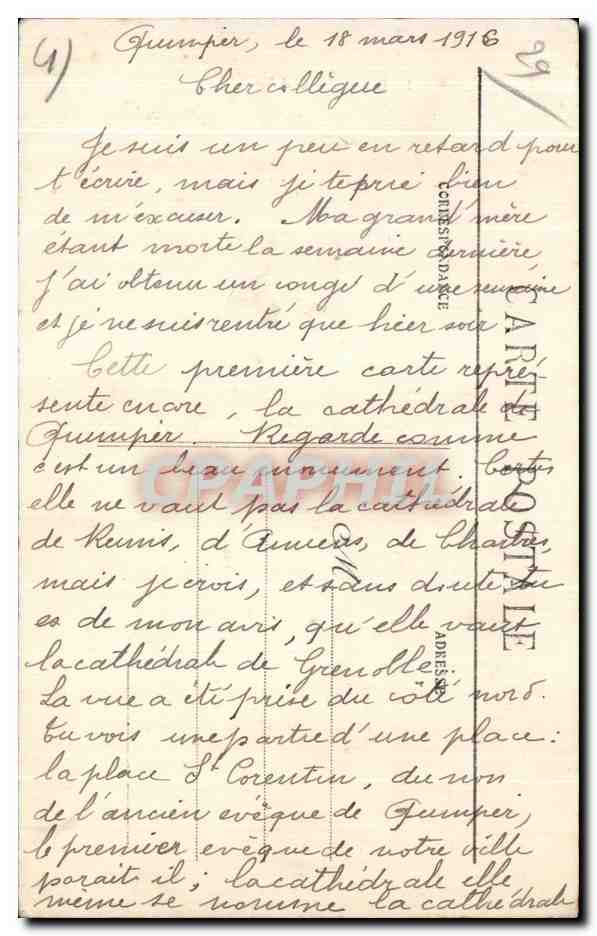 4)
29
Quimper, le 18 mars 1916
Cher collègue
Je suis un peu en retard pour
t'écrire, mais je te prie bien
de m'excuser. Ma grand'mère
étant morte la semaine dernière
j'ai obtenu un congé d'une semaine
et je ne suis rentré que hier soir
Cette première carte repré
sente encore, la cathédrale de
Quimper. Regarde comme
c'est un beau monument. Certes
elle ne vaut pas la cathédrale
de Reims, d'Amiens, de Chartres,
mais je crois, et sans doute tu
es de mon avis, qu'elle vaut
la cathédrale de Grenoble.
La vue a été prise du côté nord.
Tu vois une partie d'une place:
la place St Corentin, du nom
de l'ancien evêque de Quimper,
le premier evêque de notre ville
parait il; la cathédrale elle
meme se nomme la cathédrale
CARTE POSTALE
CORRESPONDANCE
ADRESSE
M
CPAPHIL